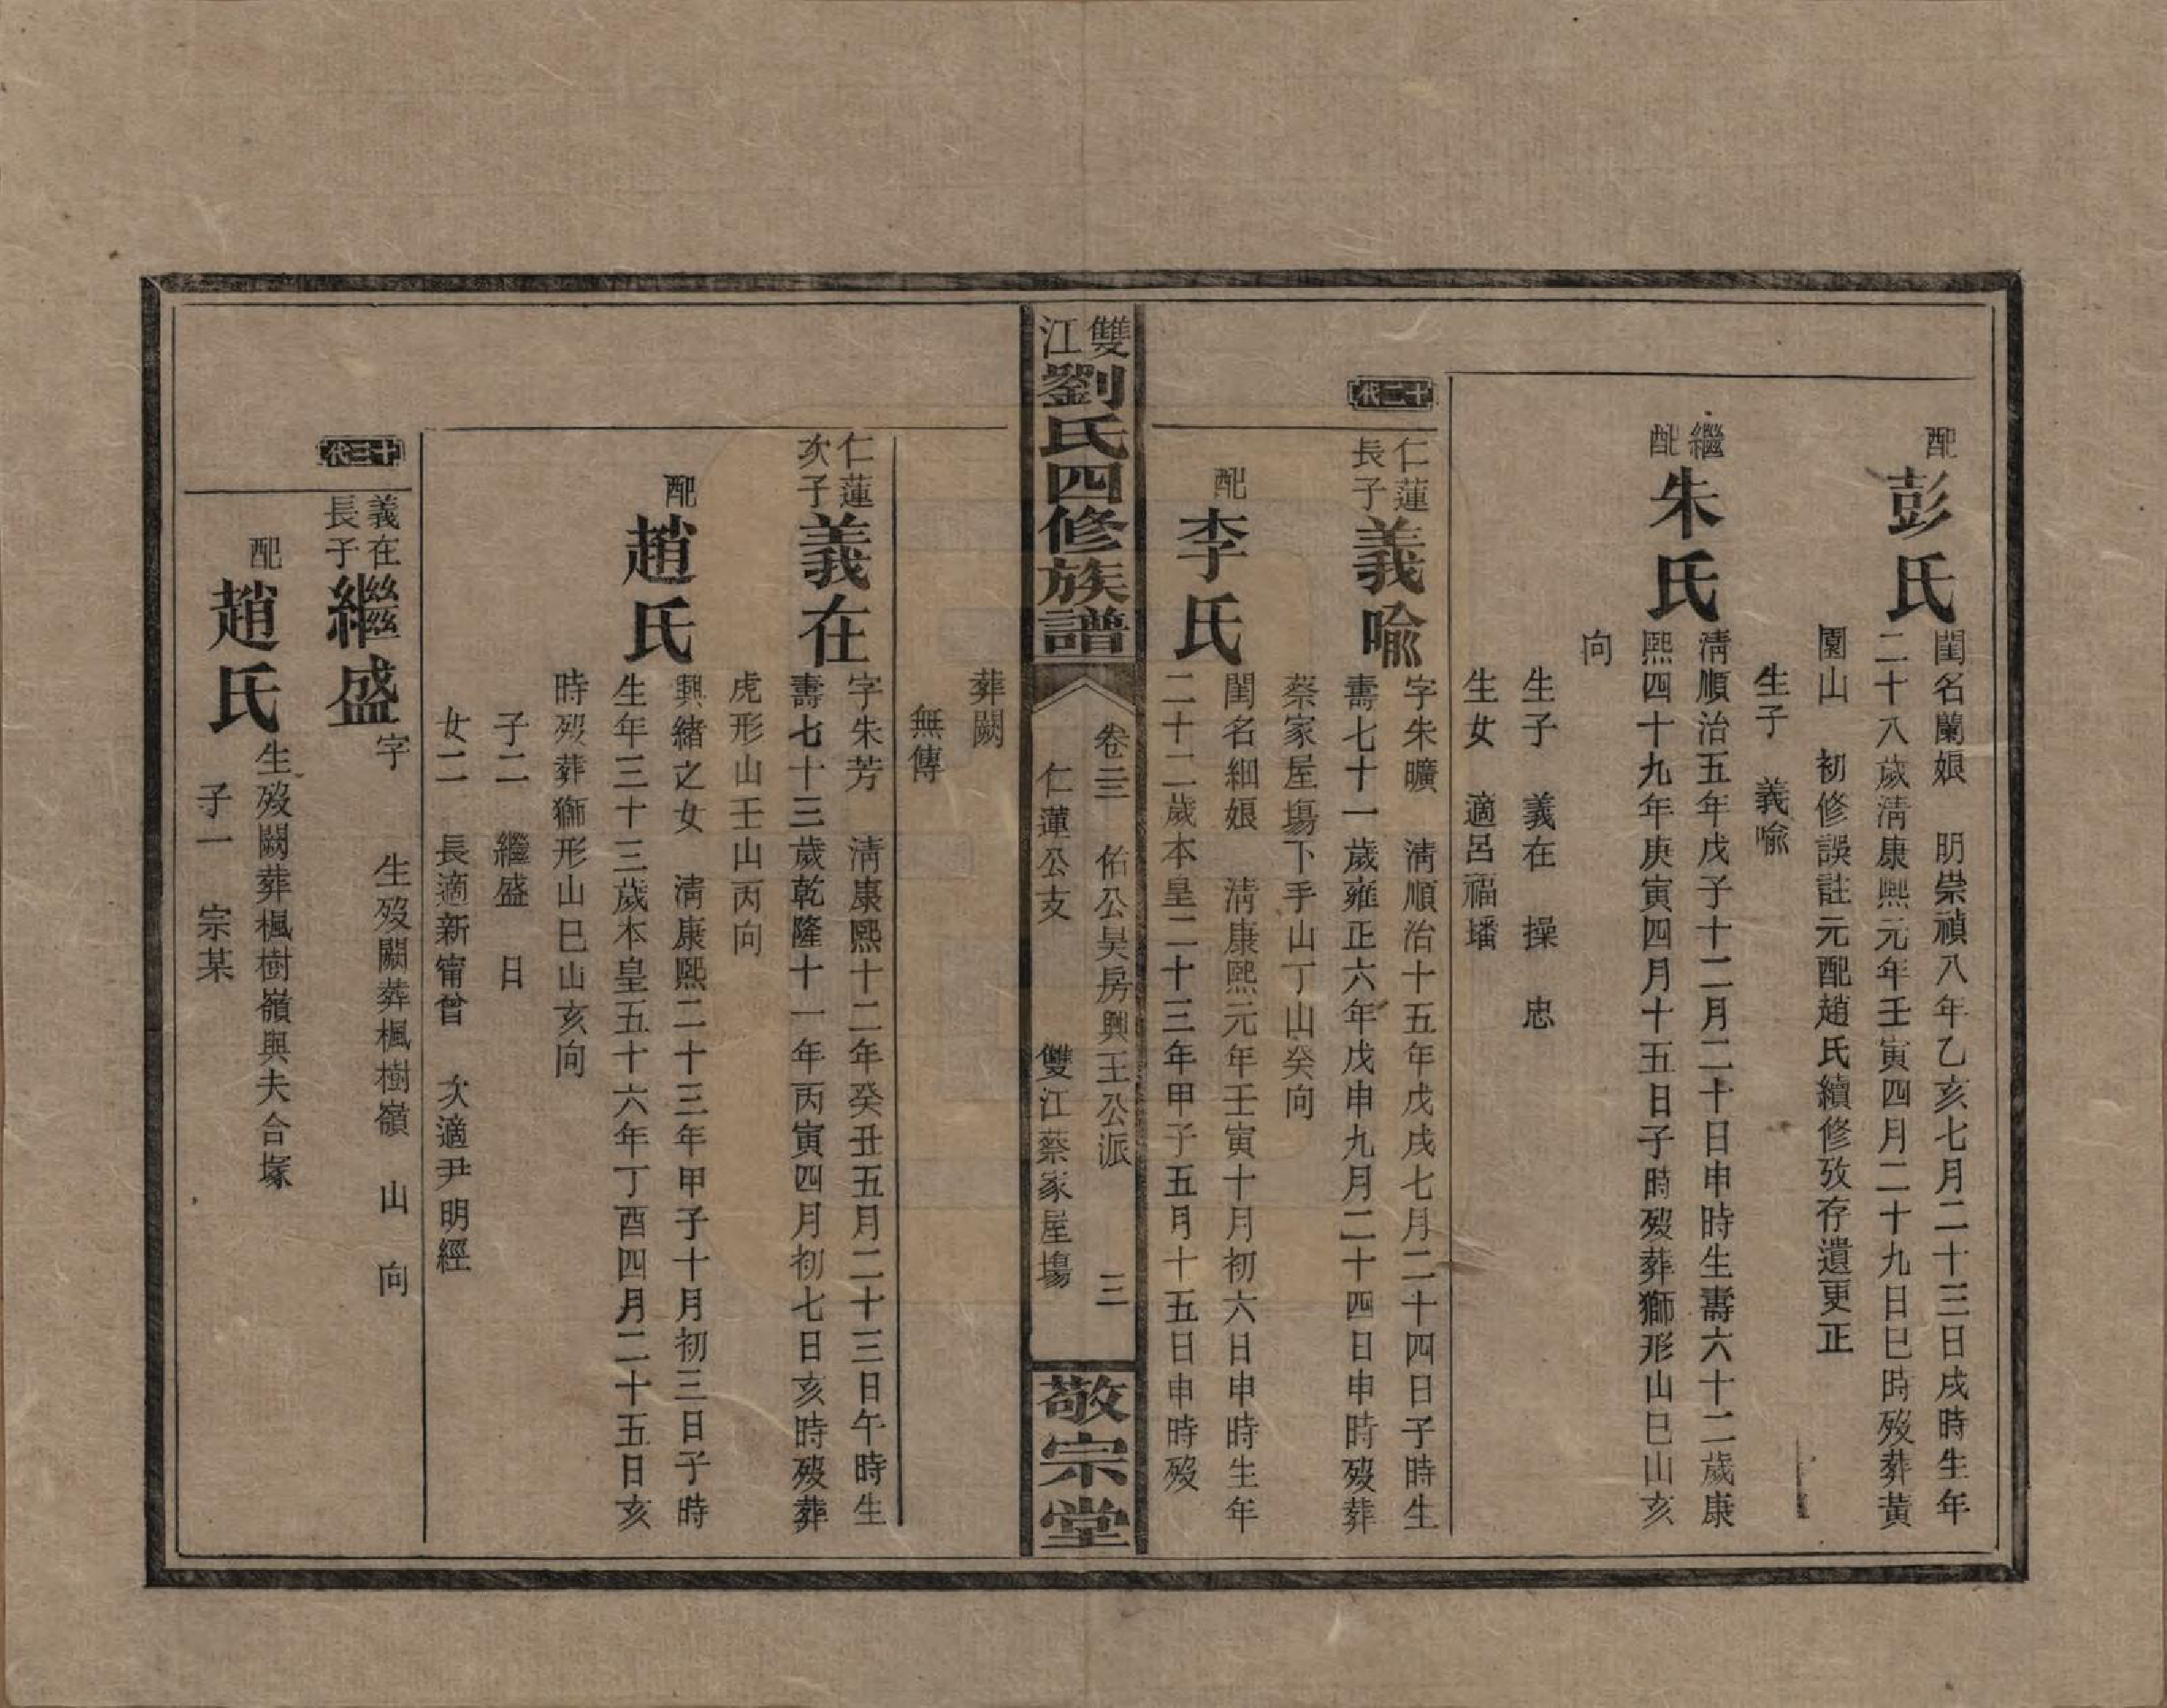 配
彭氏
閨名蘭娘　明崇禎八年乙亥七月二十三日戌時生年
二十八歲淸康熙元年壬寅四月二十九日巳時歿葬黃
園山　初修誤註元配趙氏續修攷存遺更正
生子　義喻
繼配
朱氏
淸順治五年戊子十二月二十日申時生壽六十二歲康
熙四十九年庚寅四月十五日子時歿葬獅形山巳山亥
向
生子　義在　操　忠
生女　適呂福墦
十二代
仁蓮長子
義喻
字朱曠　淸順治十五年戊戌七月二十四日子時生
壽七十一歲雍正六年戊申九月二十四日申時歿葬
蔡家屋塲下手山丁山癸向
配
李氏
閨名細娘　淸康熙元年壬寅十月初六日申時生年
二十二歲本皇二十三年甲子五月十五日申時歿
雙江
劉氏四修族譜
卷三　佑公昊房興王公派　三
仁蓮公支　雙江蔡家屋塲
敬宗堂
葬闕
無傳
仁蓮次子
義在
字朱芳　淸康熙十二年癸丑五月二十三日午時生
壽七十三歲乾隆十一年丙寅四月初七日亥時歿葬
虎形山壬山丙向
配
趙氏
興緒之女　淸康熙二十三年甲子十月初三日子時
生年三十三歲本皇五十六年丁酉四月二十五日亥
時歿葬獅形山巳山亥向
子二　繼盛　日
女二　長適新甯曾　次適尹明經
十三代
義在長子
繼盛
字　　生歿闕葬楓樹嶺　山　向
配
趙氏
生歿闕葬楓樹嶺與夫合塚
子一　宗某